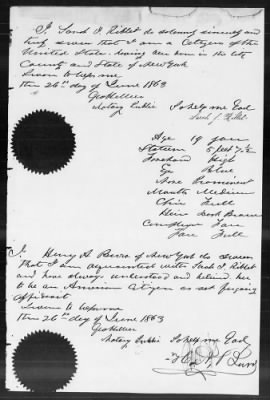 I, Sarah J. Ribbet do solemnly sincerely and
truly swear that I am a Citizen of the
United States. having been born in the City
County and State of New York
Sworn to before me
this 26th day of June 1863
Notary Public So help me God
Sarah J. Ribbet
Age 19 years
Stature 5 feet
Forehead High
Eyes Blue
Nose Prominent
Mouth Medium
Chin Full
Hair Dark Brown
Complexion Fair
Face Full
I, Henry A. of New York do swear
That I am acquainted with Sarah J. Ribbet
and have always understood and believed her
to be an American Citizen as set forth in
affidavit
Sworn to before me
this 26th day of June 1863
Notary Public So help me God